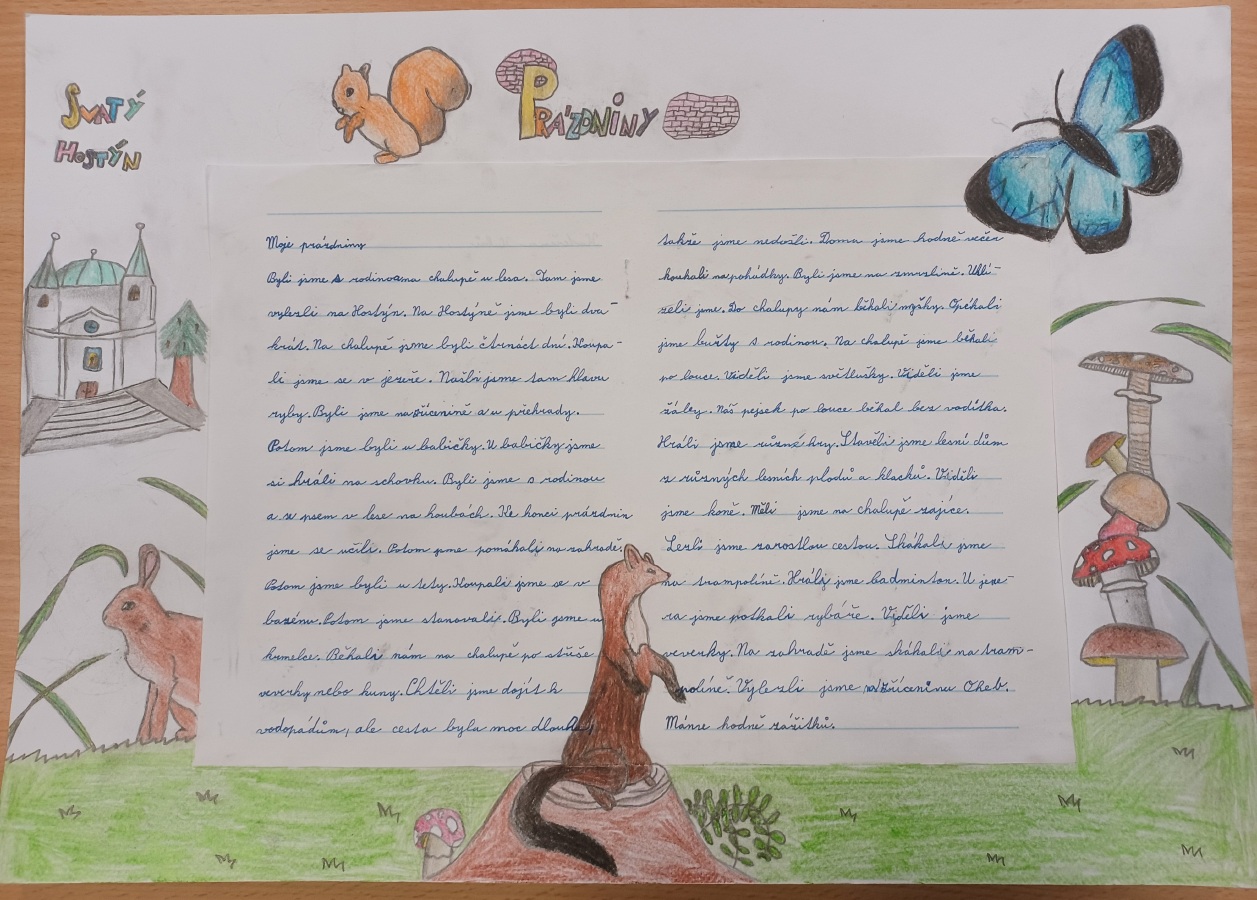 Svatý
Hostýn
Prázdniny
Moje prázdniny
Byli jsme s rodinou na chalupě u lesa. Tam jsme
vylezli na Hostýn. Na Hostýně jsme byli dva-
krát. Na chalupě jsme byli čtrnáct dní. Koupa-
li jsme se v jezeře. Našli jsme tam hlavu
ryby. Byli jsme na zřícenině a u přehrady.
Potom jsme byli u babičky. U babičky jsme
si hráli na schovku. Byli jsme s rodinou
a se psem v lese na houbách. Ke konci prázdnin
jsme se učili. Potom jsme pomáhali na zahradě.
Potom jsme byli u tety. Koupali jsme se v
bazénu. Potom jsme stanovali. Byli jsme u
kamelce. Běhali nám na chalupě po střeše
veverky nebo kuny. Chtěli jsme dojít k
vodopádům, ale cesta byla moc dlouhá,
takže jsme nedošli. Doma jsme hodně večer
koukali na pohádky. Byli jsme na zmrzlině. Uklí-
zeli jsme. Do chalupy nám běhali myšky. Opékali
jsme buřty s rodinou. Na chalupě jsme běhali
po louce. Viděli jsme světlušky. Viděli jsme
žáby. Náš pejsek po louce běhal bez vodítka.
Hráli jsme různé hry. Stavěli jsme lesní dům
z různých lesních plodů a klacků. Viděli
jsme koně. Měli jsme na chalupě zajíce.
Lezli jsme zarostlou cestou. Skákali jsme
na trampolíně. Hráli jsme badminton. U jeze-
ra jsme potkali rybáře. Viděli jsme
veverky. Na zahradě jsme skákali na tram-
políně. Vylezli jsme na zříceninu Obřeb.
Máme hodně zážitků.